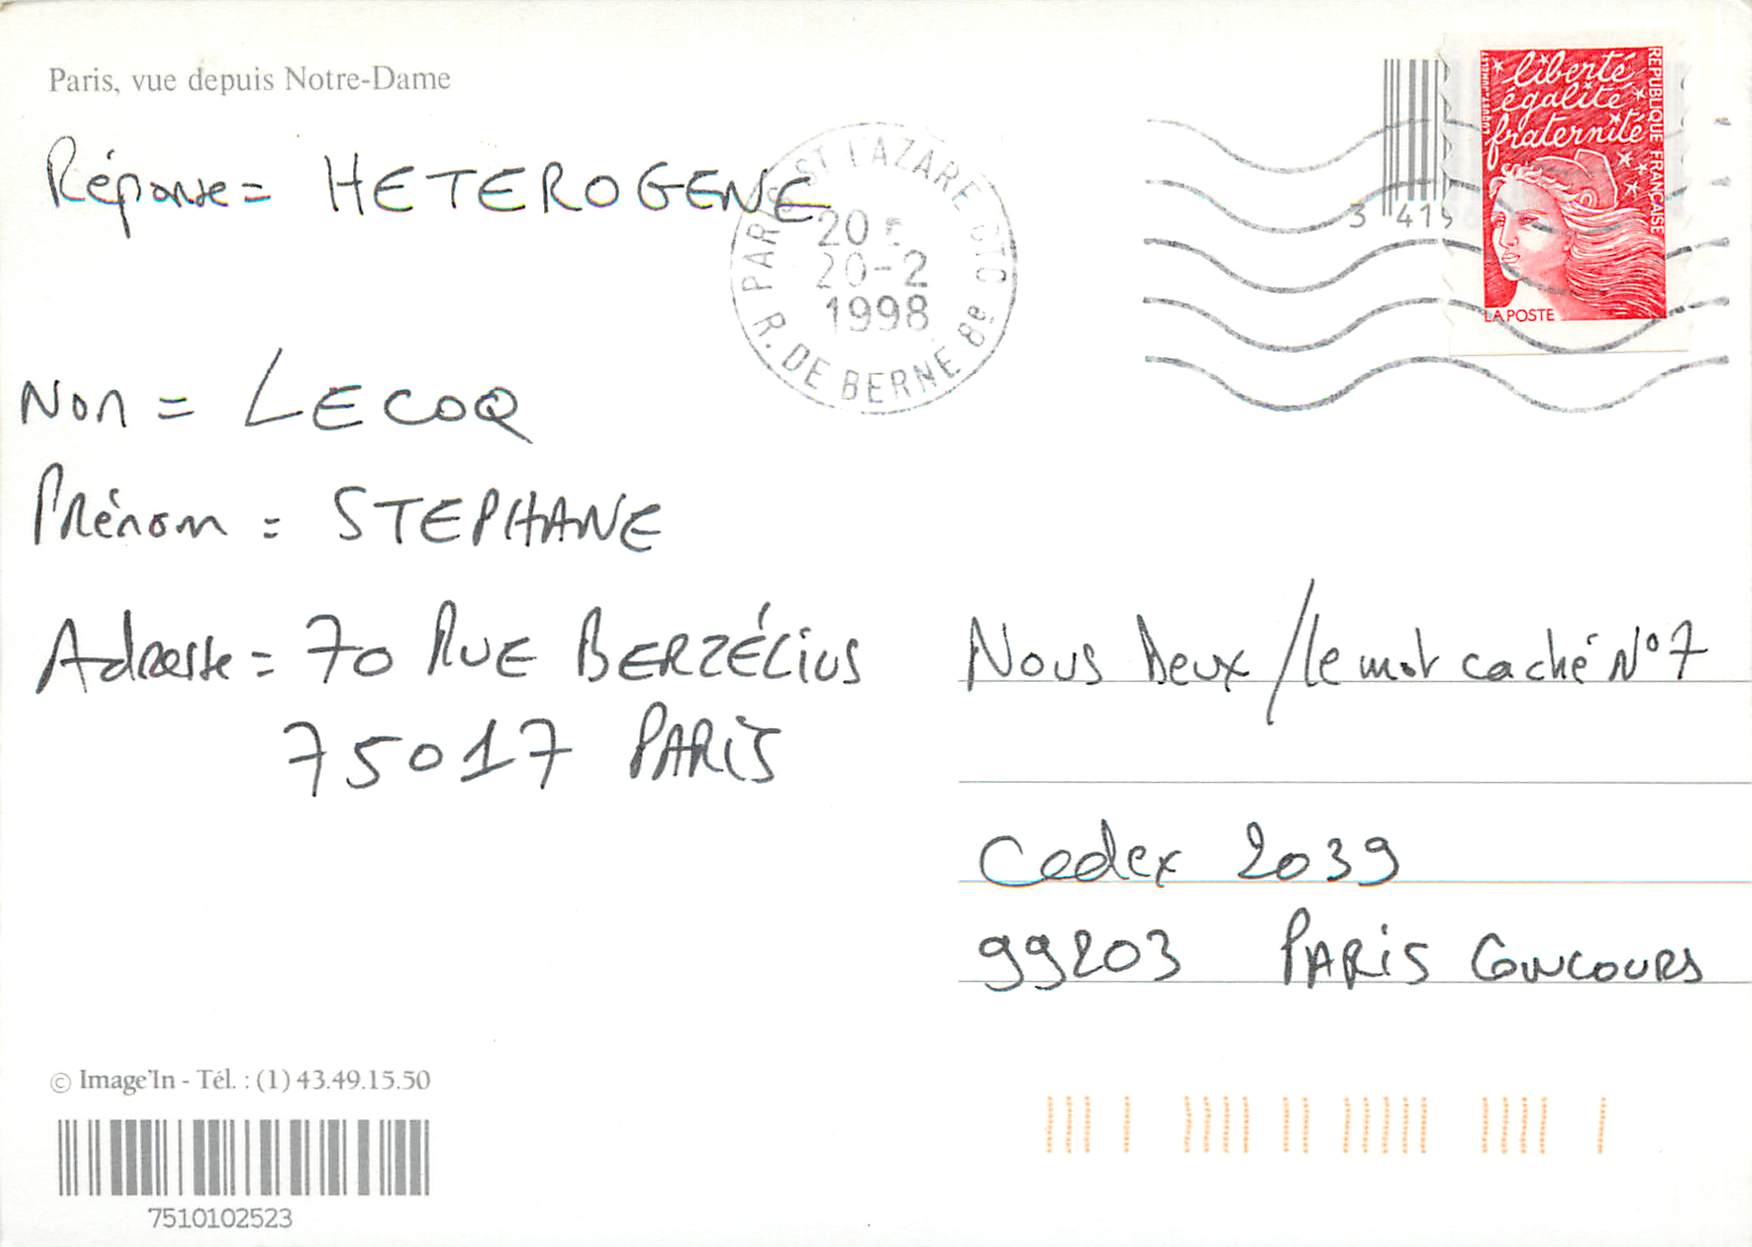 Paris, vue depuis Notre-Dame
Réponse = HETEROGENE
PARIS ST LAZARE CTC
20
20-2
1998
R. DE BERNE 8e
3 415
liberté
égalité
fraternité
REPUBLIQUE FRANÇAISE
LA POSTE
Nom = LECOQ
Prénom = STEPHANE
Adresse = 70 RUE BERZÉLIUS
75017 PARIS
Nous Deux / le mot caché N°7
Cedex 2039
99203 PARIS CONCOURS
© Image'In - Tél. : (1) 43.49.15.50
7510102523